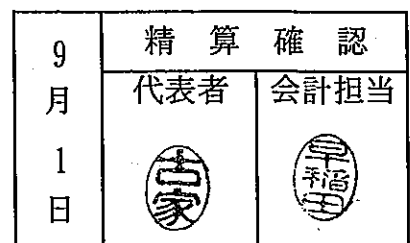 9月1日
精算確認
代表者
会計担当
古家
早稲田